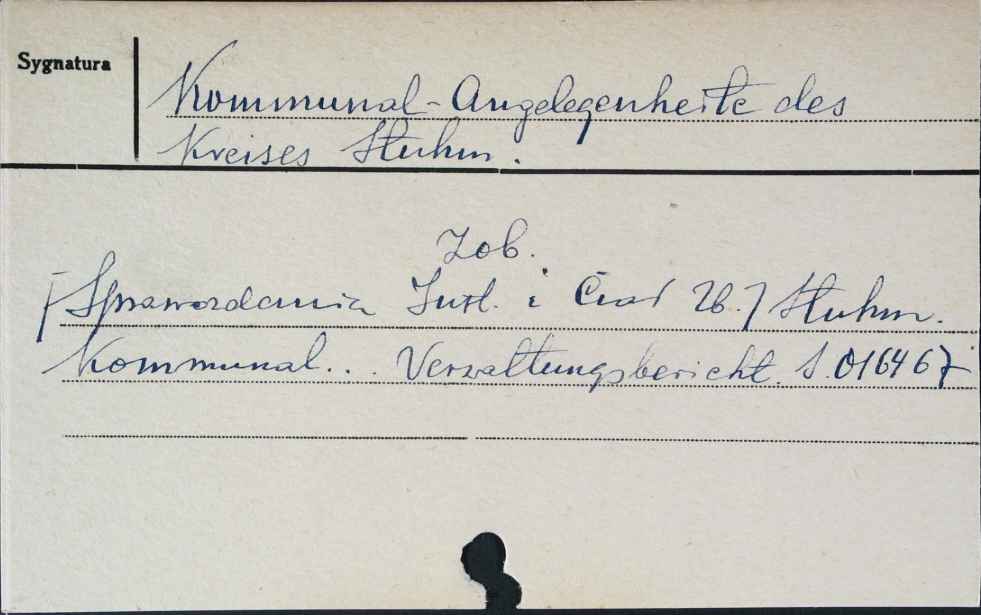 Sygnatura
Kommunal-Angelegenheite des
Kreises Stuhm.
Zob.
[Sprawozdania Inst. i Czas 26.] Stuhm.
Kommunal... Verwaltungsbericht. S.016467